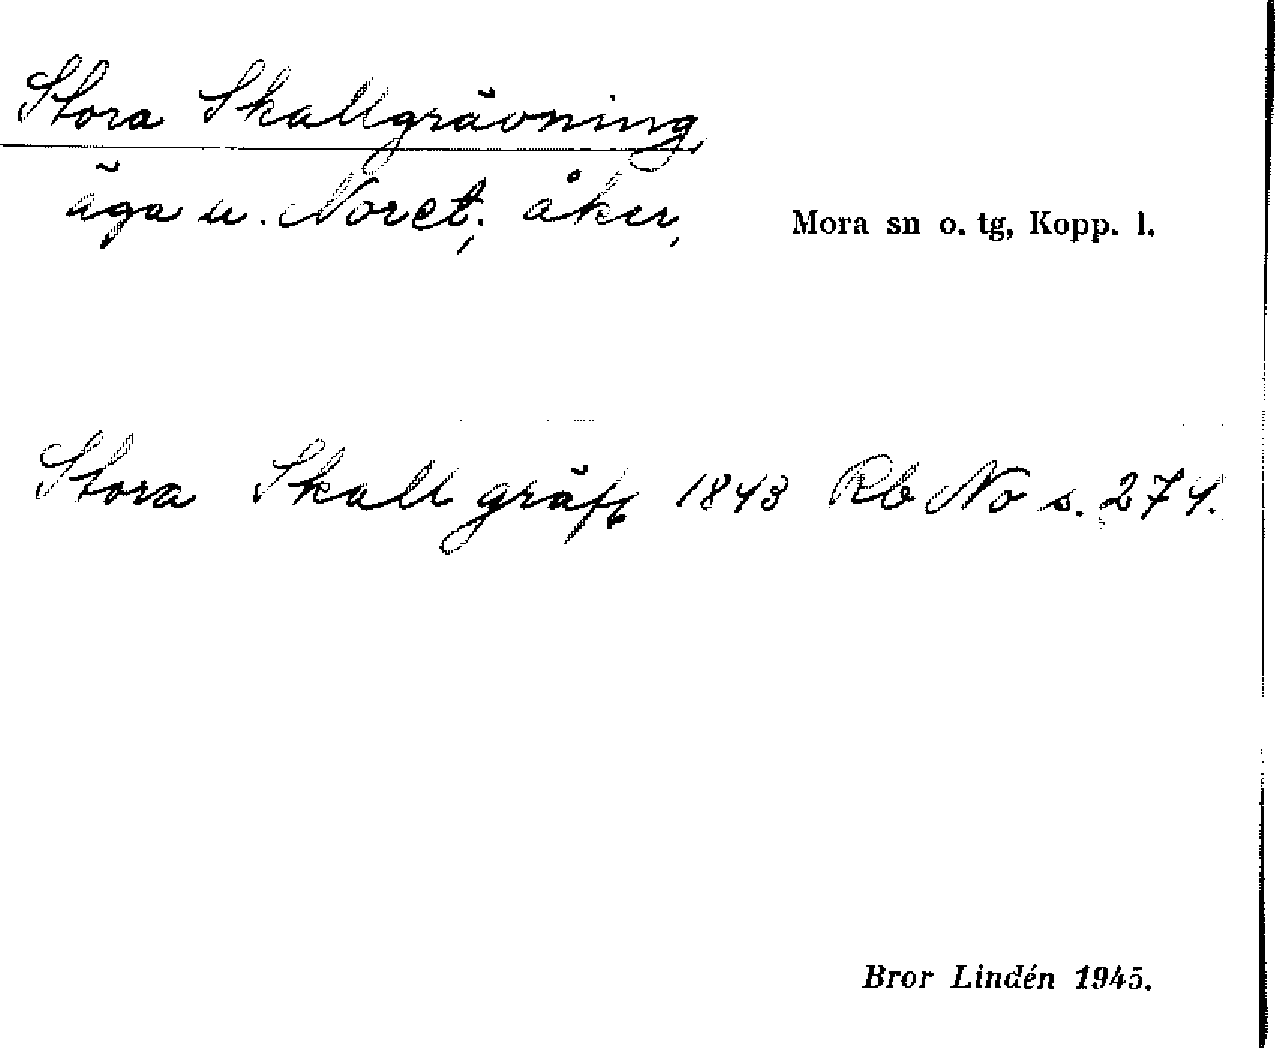 Stora Skallgrävning,
äga u. Noret; åker,
Mora sn o. tg, Kopp. l.
Stora Skallgräft 1843 Rb No s. 274.
Bror Lindén 1945.